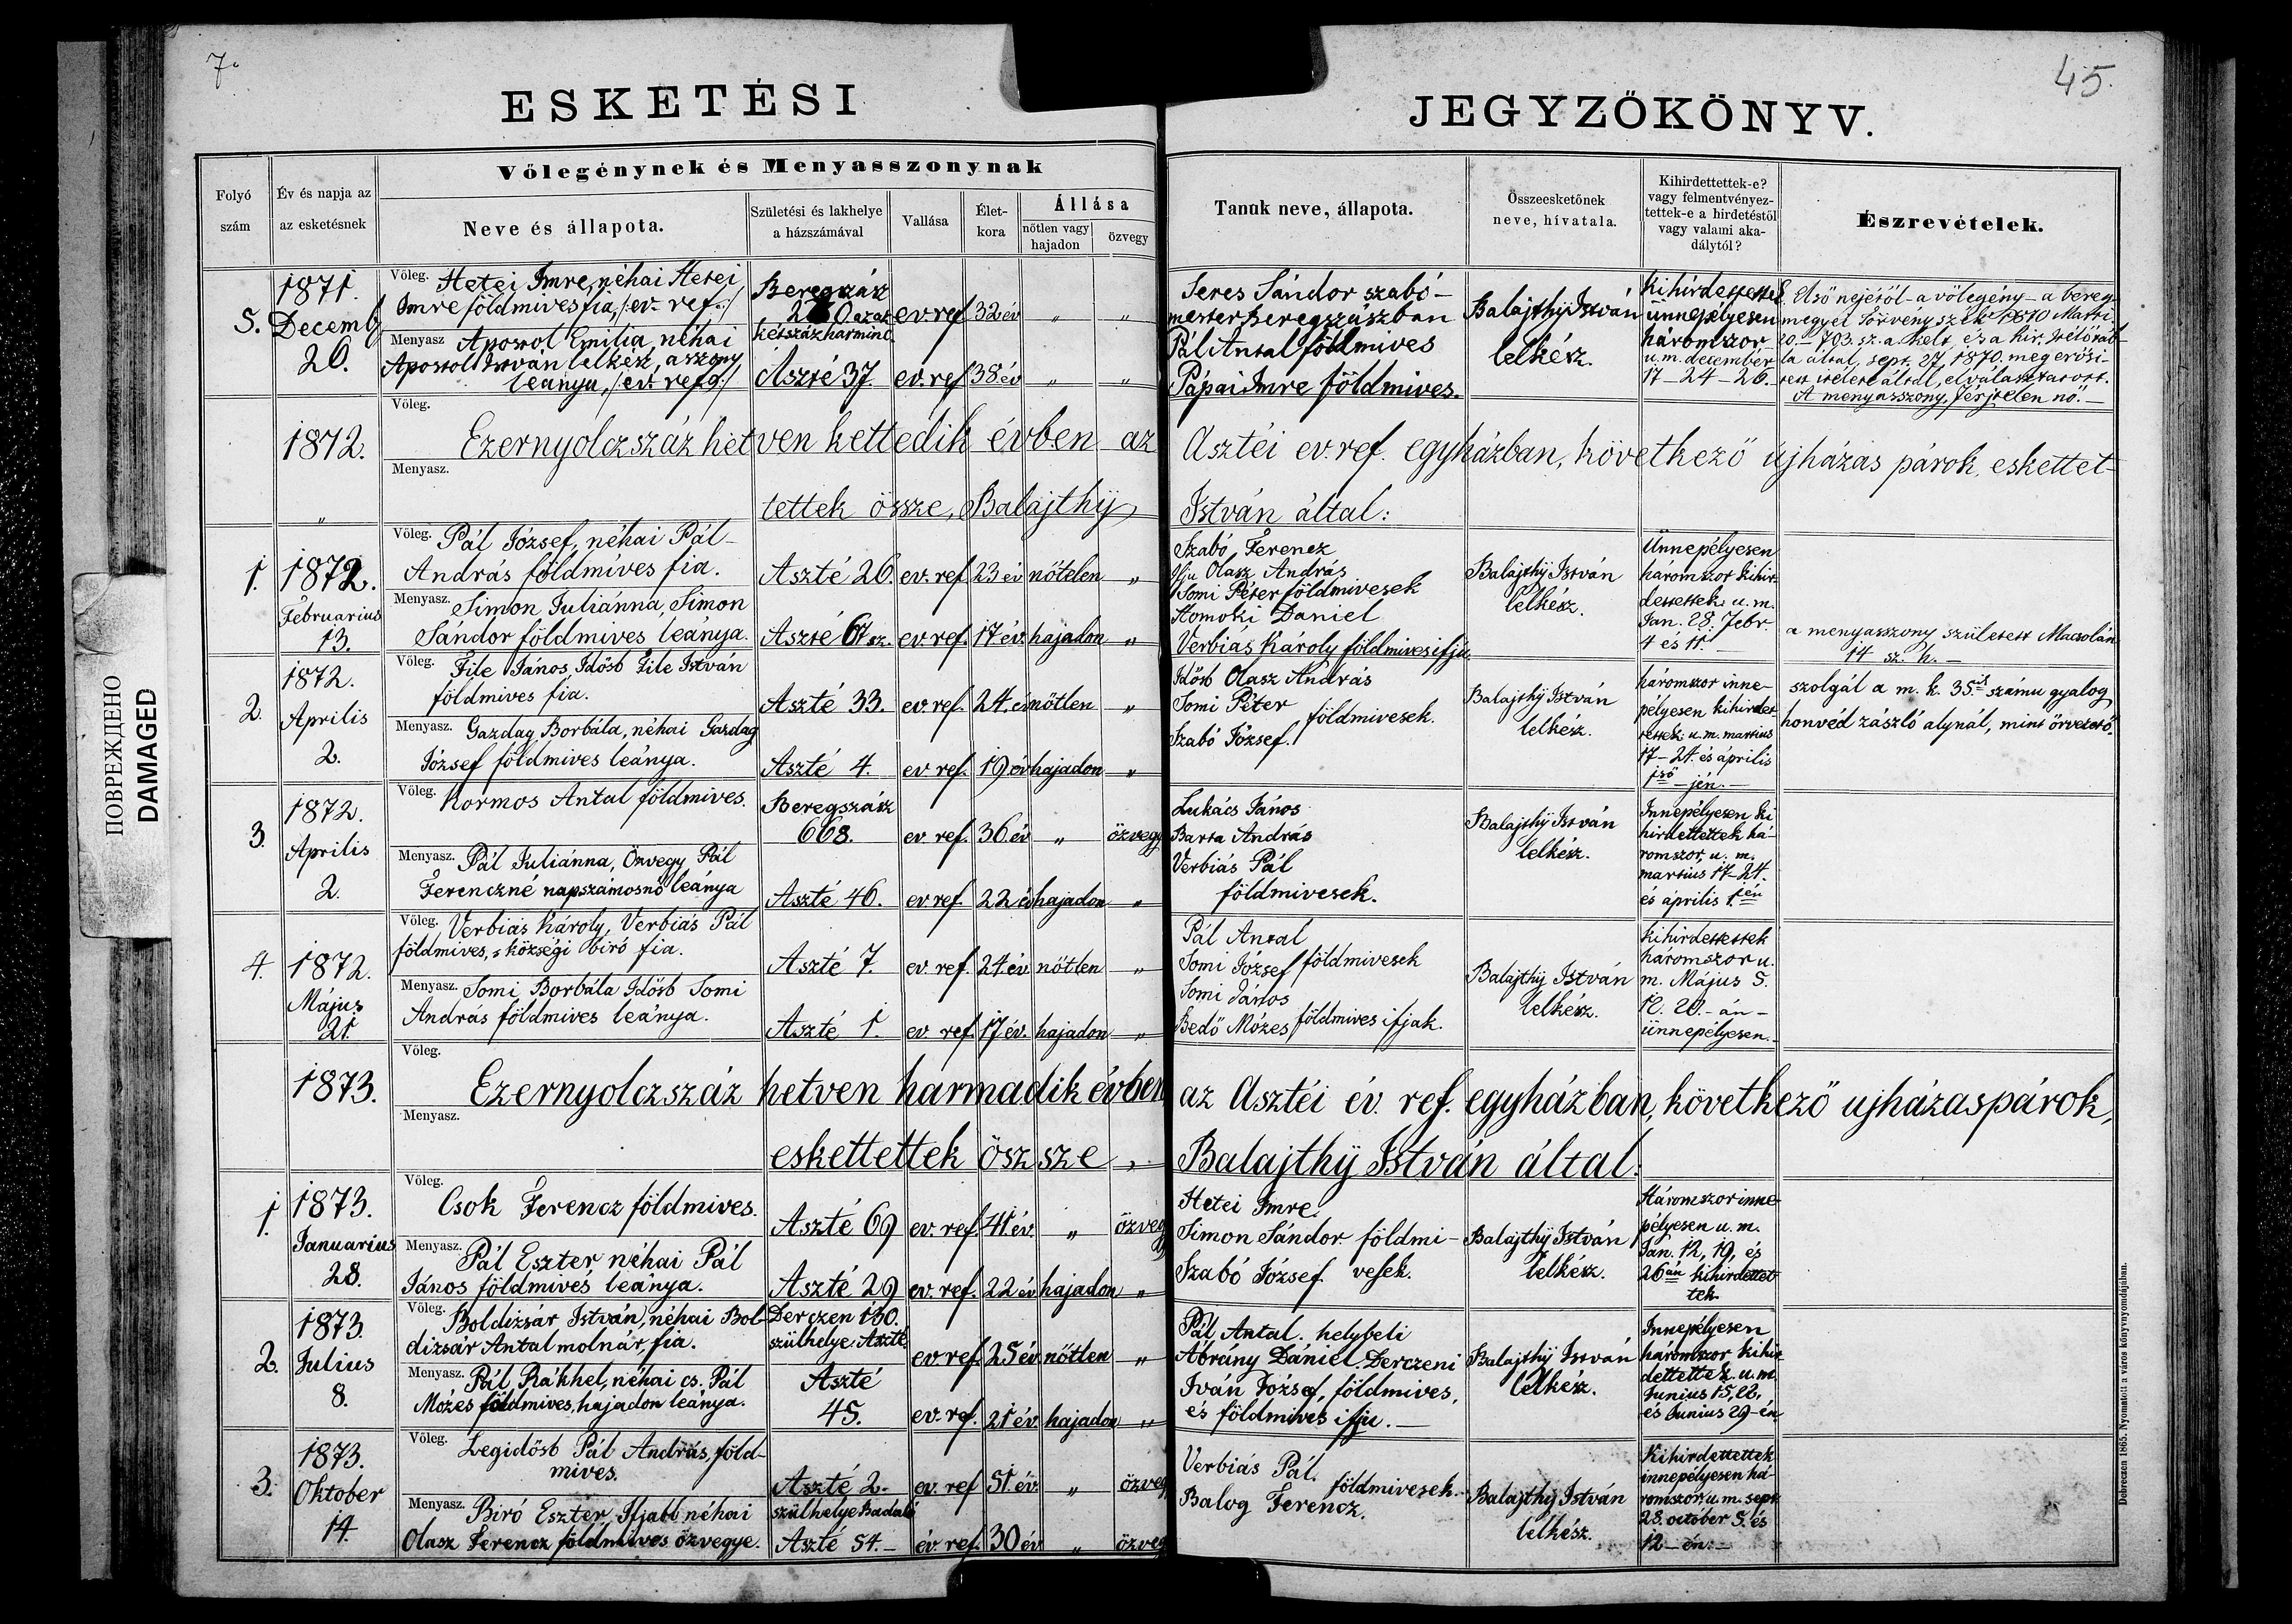 7.
45.
ESKETÉSI
JEGYZŐKÖNYV.
ПОВРЕЖДЕНО
DAMAGED
Folyó szám
Év és napja az az esketésnek
Vőlegénynek és Menyasszonynak
Neve és állapota.
Születési és lakhelye a házszámával
Vallása
Élet-kora
Állása
nőtlen vagy hajadon
özvegy
Tanuk neve, állapota.
Összeesketőnek neve, hívatala.
Kihirdettettek-e? vagy felmentvényez-tettek-e a hirdetéstől vagy valami aka-dálytól?
Észrevételek.
5.
1871.
Decemb
26.
Vőleg. Hetei Imre, néhai Hetei
Imre földmives fia, /:ev. ref.:/
Beregszász
azaz
kétszázharmincz
ev ref 32 év „ „
Menyasz Apostol Emilia, néhai
Apostol István lelkész, aszony
leánya, /:ev. ref.:/
Aszté 37. ev. ref 38 év „ „
Seres Sándor szabó-
mester Beregszászban
Pál Antal földmives
Pápai Imre földmives.
Balajthÿ István
lelkész.
Kihirdettettek
ünnepélyesen
háromszor
u. m. december
17–24–26.
Első nejétől – a vőlegény – a bereg-
megyei Törvényszék
703. sz. a. kelt, és a kir. itélőtáb-
la által, sept. 27, 1870. megerősi-
tett itélete által, elválasztatott.
A menyasszony, férjtelen nő. –
Vőleg.
1872.
Ezernyolczszáz hetven kettedik évben az Asztéi ev. ref. egyházban, következő újházas párok, eskettet-
Menyasz.
„
tettek össze, Balajthÿ István által:
1.
1872.
Februarius
13.
Vőleg. Pál József, néhai Pál
András földmíves fia.
Aszté 26. ev. ref 23 év nőtelen „
Menyasz. Simon Juliánna, Simon
Sándor földmíves leánya.
Aszté 67 sz. ev. ref. 17 év. hajadon „
Szabó Ferencz
Ifju Olasz András
Somi Péter földmivesek
Homoki Daniel
Verbiás Károly földmives ifju.
Balajthÿ István
lelkész.
Ünnepélyesen
háromszor kihir-
dettettek: u. m.
Jan. 28. Febr
4 és 11. –
a menyasszony született Macsolán
14 sz. h. –
2.
1872.
Aprilis
2.
Vőleg. File János, Idősb File István
földmives fia.
Aszté 33. ev. ref. 24. év nőtlen „
Menyasz. Gazdag Borbála, néhai Gazdag
József földmives leánya.
Aszté 4. ev ref. 19 év hajadon „
Idősb Olasz András
Somi Péter
földmivesek.
Szabó József.
Balajthÿ István
lelkész.
háromszor inne-
pélyesen kihirdet-
tettek: u. m. martius
17–24. és április
1ső – jén. –
szolgál a m. k. 35ik számu gyalog
honvéd zászló alynál, mint őrvezető.
3.
1872.
Aprilis
2.
Vőleg. Kormos Antal földmives.
Beregszász
668. ev ref. 36 év „ özvegy
Menyasz. Pál Juliánna, Özvegy Pál
Ferenczné napszámosnő leánya
Aszté 46. ev ref. 22 év hajadon „
Lukács János
Barta András
Verbiás Pál
földmivesek.
Balajthÿ István
lelkész.
Innepélyesen ki
hirdettettek há-
romszor, u. m.
martius 17–24.
és április 1én
4.
1872.
Május
21.
Vőleg. Verbiás Károly, Verbiás Pál
földmives, s községi biró fia.
Aszté 7. ev. ref. 24. év nőtlen „
Menyasz. Somi Borbála Idősb Somi
András földmives leánya.
Aszté 1. ev ref. 17 év. hajadon „
Pál Antal
Somi József földmivesek
Somi János
Bedő Mózes földmives ifjak.
Balajthÿ István
lelkész.
kihirdettettek
háromszor u.
m. Május 5.
12. 20. – án –
ünnepélyesen. –
Vőleg.
1873.
Ezernyolczszáz hetven harmadik évben az Asztéi év. ref. egyházban, következő ujházaspárok,
Menyasz.
eskettettek öszsze, Balajthÿ István által:
1.
1873.
Januarius
28.
Vőleg.
Csok Ferencz földmives.
Aszté 69 ev. ref. 41 év. „ özvegy
Menyasz. Pál Eszter néhai Pál
János földmives leánya.
Aszté 29 ev. ref. 22 év hajadon „
Hetei Imre.
Simon Sándor földmi-
Szabó József. vesek.
Balajthÿ István
lelkész.
Háromszor inne-
pélyesen u. m.
Jan. 12, 19, és
26án kihirdettet
tek.
2.
1873.
Julius
8.
Vőleg. Boldizsár István, néhai Bol-
dizsár Antal molnár, fia.
Derczen 130.
szülhelye: Aszté
ev ref 25 év nőtlen „
Menyasz. Pál Rákhel, néhai cs. Pál
Mózes földmives, hajadon leánya.
Aszté
45. ev. ref. 21 év hajadon „
Pál Antal. helybeli
Ábrány Dániel. Derczeni
Iván József, földmives,
és földmives ifju. –
Balajthÿ István
lelkész.
Innepélyesen
háromszor kihir-
dettettek. u. m.
Junius 15, 22,
és Junius 29-én
3.
1873.
Oktober
14.
Vőleg. Legidősb Pál András, föld-
mives.
Aszté 2. ev. ref 51. év. „ özvegy
Menyasz. Biró Eszter, Ifjabb néhai
Olasz Ferencz földmives özvegye.
szülhelye Badaló
Aszté 54. – év. ref. 30 év „ özvegy
Verbiás Pál. földmivesek.
Balog Ferencz.
Balajthÿ István
lelkész.
Kihirdettettek
innepélyesen há-
romszor: u. m. sept
28. october 5. és
12 – én: –
Debreczen 1865. Nyomatott a város könyvnyomdájában.